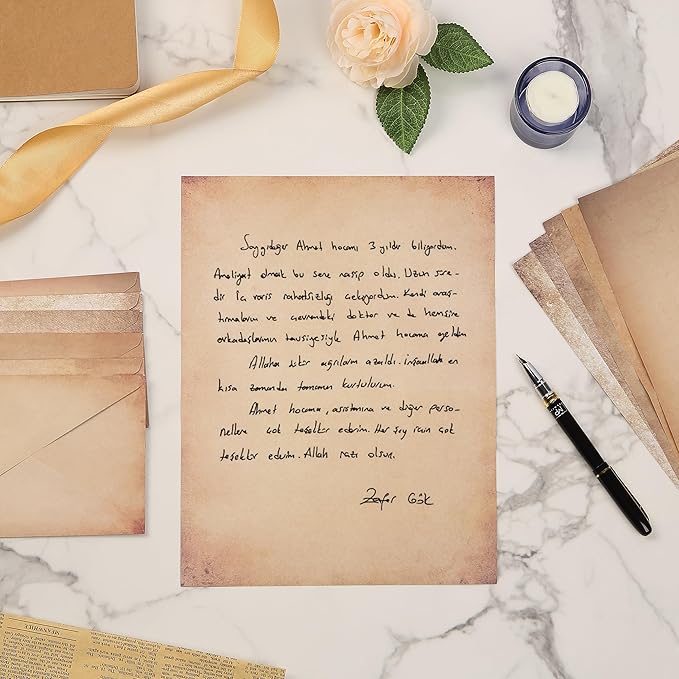 Saygıdeğer Ahmet hocamı 3 yıldır biliyordum.
Ameliyat olmak bu sene nasip oldu. Uzun süre-
dir iç varis rahatsızlığı çekiyordum. Kendi araş-
tırmalarım ve çevremdeki doktor ve de hemşire
arkadaşlarımın tavsiyesiyle Ahmet hocama geldim
Allaha şükür ağrılarım azaldı. İnşaallah en
kısa zamanda tamamen kurtulurum.
Ahmet hocama, asistanına ve diğer perso-
nellere çok teşekkür ederim. Her şey için çok
teşekkür ederim. Allah razı olsun.
Zafer Gök